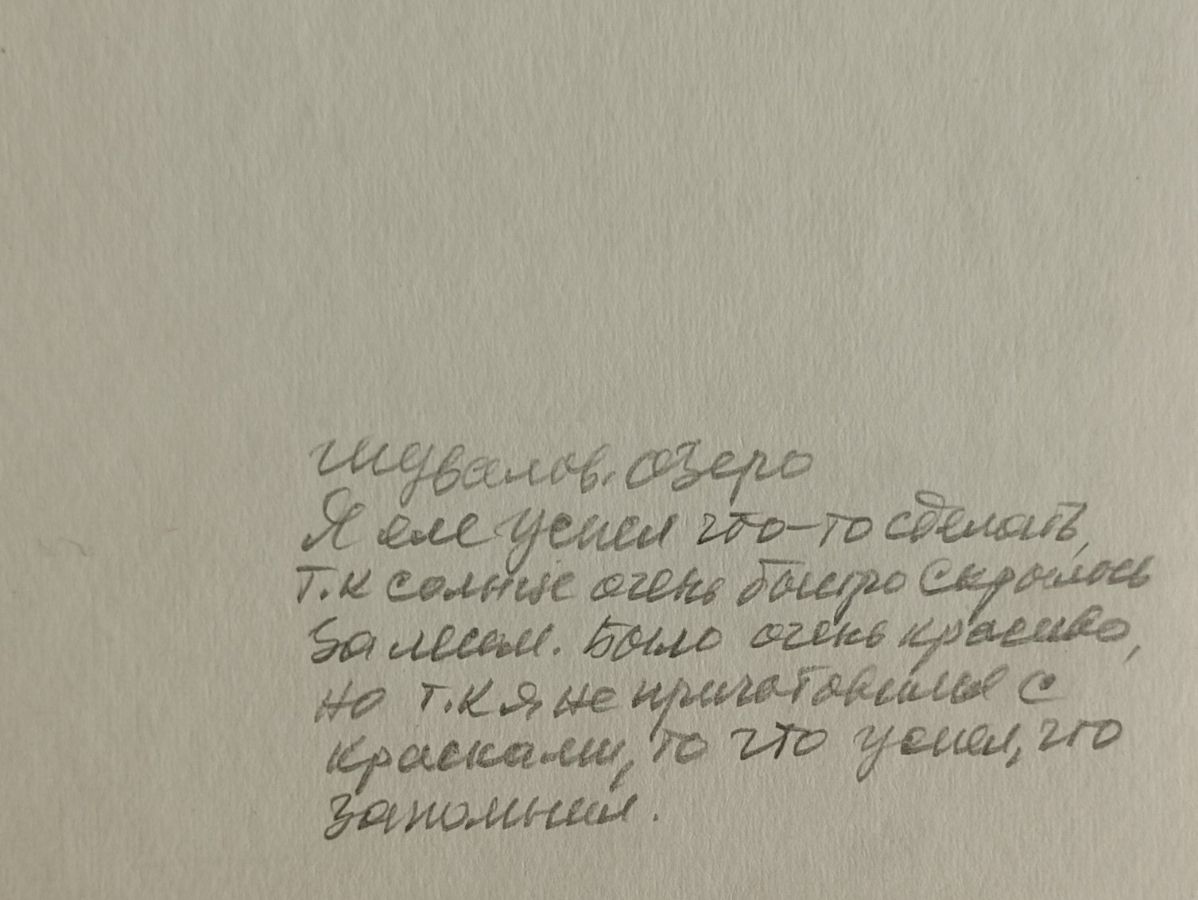 Шувалов. озеро
Я еле успел что-то сделать,
т.к солнце очень быстро скрылось
за лесом. Было очень красиво,
но т.к я не приготовился с
красками, то что успел, что
запомнил.